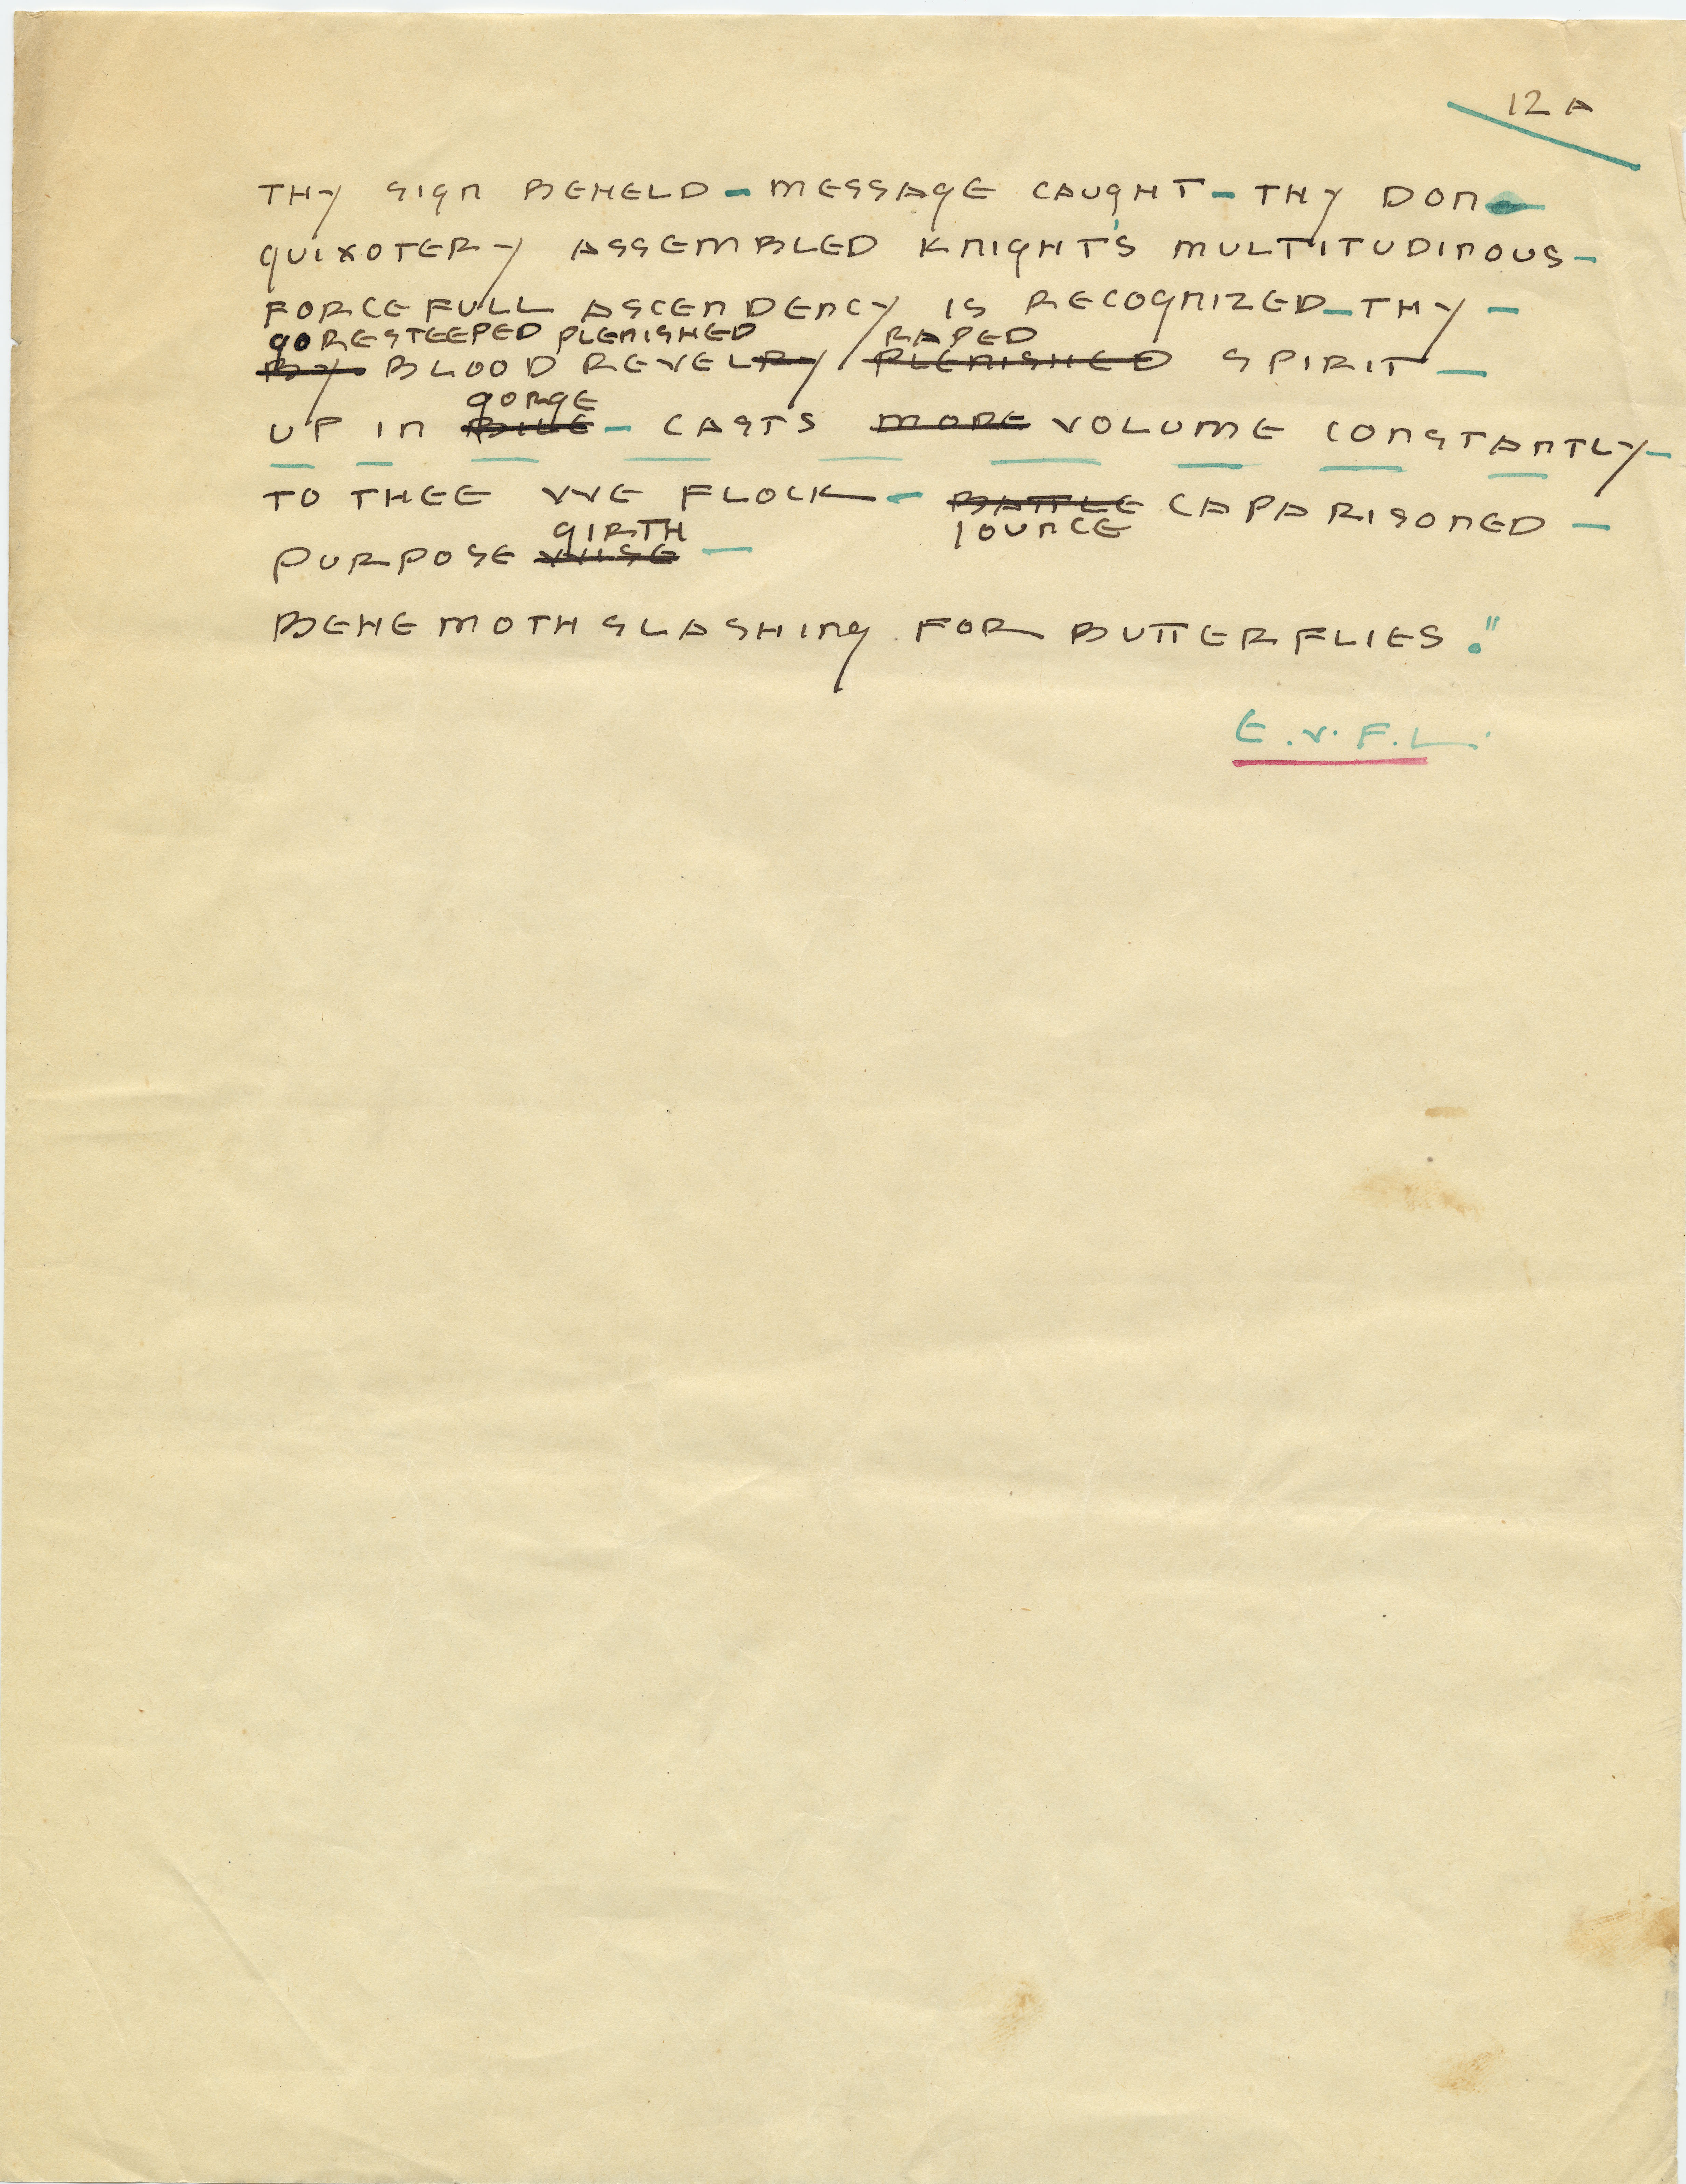 12 A
THY SIGN BEHELD – MESSAGE CAUGHT – THY DON –
QUIXOTERY ASSEMBLED KNIGHT'S MULTITUDINOUS –
FORCEFULL ASCENDENCY IS RECOGNIZED – THY –
GORESTEEPED PLENISHED RAPED
BY BLOOD REVELRY PLENISHED SPIRIT –
GORGE
UP IN BILE – CASTS MORE VOLUME CONSTANTLY –
TO THEE WE FLOCK – BATTLE CAPARISONED –
GIRTH JOUNCE
PURPOSE –
BEHEMOTH SLASHING FOR BUTTERFLIES."
E.V.F.L.